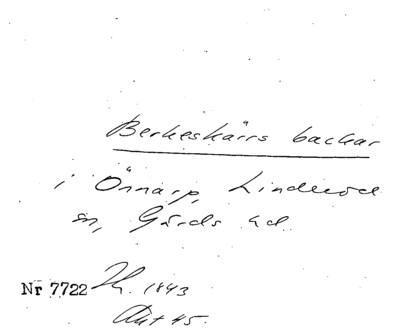 Berkeskärrs backar
i Önnarp, Linderöd
sn, Gärds hd.
Nr 7722 Th. 1843
Akt 45.